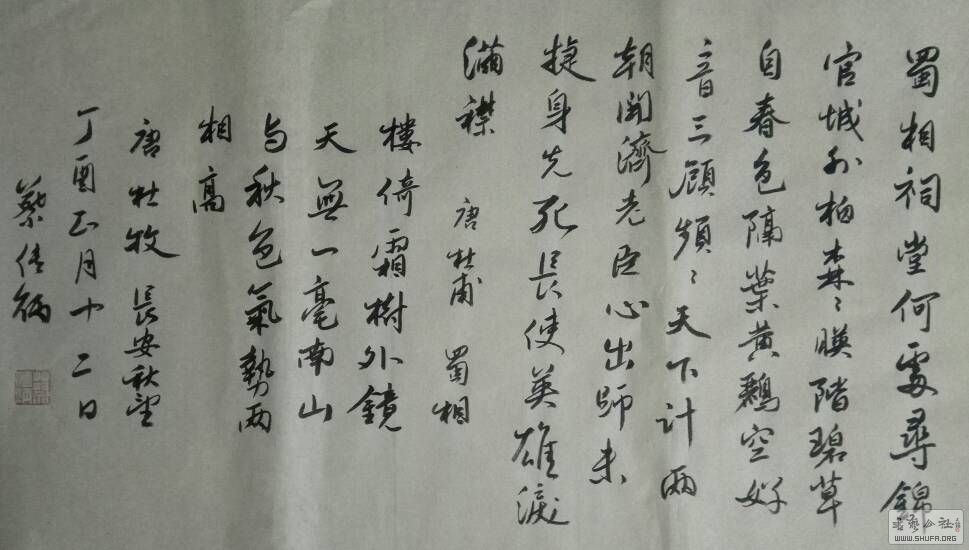 蜀相祠堂何處尋錦
官城外柏森〻暎階碧草
自春色隔葉黄鸝空好
音三顧頻〻天下計兩
朝開濟老臣心出師未
捷身先死長使英雄淚
滿襟
唐杜甫 蜀相
樓倚霜樹外鏡
天無一毫南山
与秋色氣勢兩
相高
唐杜牧 長安秋望
丁酉正月十二日
蔡傳炳
書藝公社
WWW.SHUFA.ORG